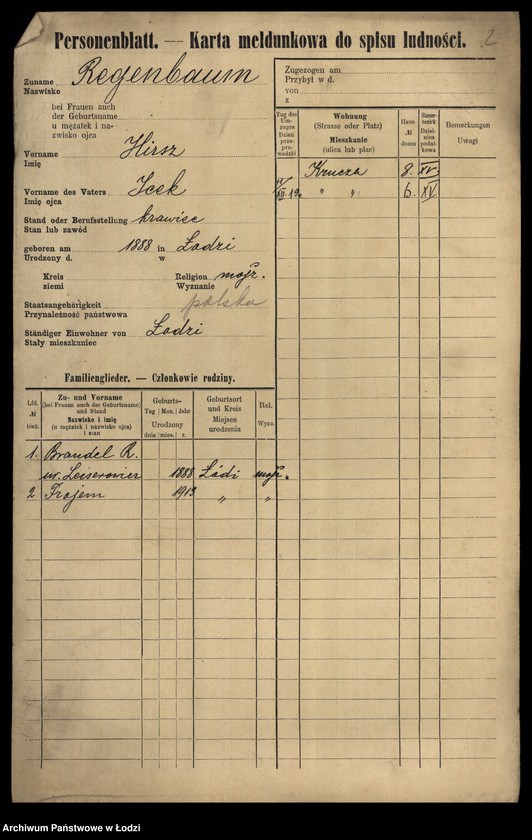 Personenblatt. — Karta meldunkowa do spisu ludności.
2
Zuname Regenbaum
Nazwisko
bei Frauen auch
der Geburtsname
u mężatek i na-
zwisko ojca
Vorname Hirsz
Imię
Vorname des Vaters Icek
Imię ojca
Stand oder Berufsstellung krawiec
Stan lub zawód
geboren am 1888 in Łodzi
Urodzony d. w
Kreis Religion mojż.
ziemi Wyznanie
Staatsangehörigkeit polska
Przynależność państwowa
Ständiger Einwohner von Łodzi
Stały mieszkaniec
Zugezogen am
Przybył w d.
von
z
Tag des Um-zuges Dzień prze-prowadzki
Wohnung
(Strasse oder Platz)
Mieszkanie
(ulica lub plac)
Haus № domu
Steuer-bezirk Dzielnica podat-kowa
Bemerkungen
Uwagi
Krucza 8. XV
XII.19. " " 6. XV
Familienglieder. — Członkowie rodziny.
Lfd. № bież.
Zu- und Vorname
(bei Frauen auch der Geburtsname)
und Stand
Nazwisko i imię
(u mężatek i nazwisko ojca)
i stan
Geburts-
Tag Mon. Jahr
Urodzony
dnia mies. r.
Geburtsort
und Kreis
Miejsce
urodzenia
Rel.
Wyzn.
1. Brandel R.
ur. Leiserowicz 1888 Łódź mojż.
2 Frajem 1913 " "
Archiwum Państwowe w Łodzi